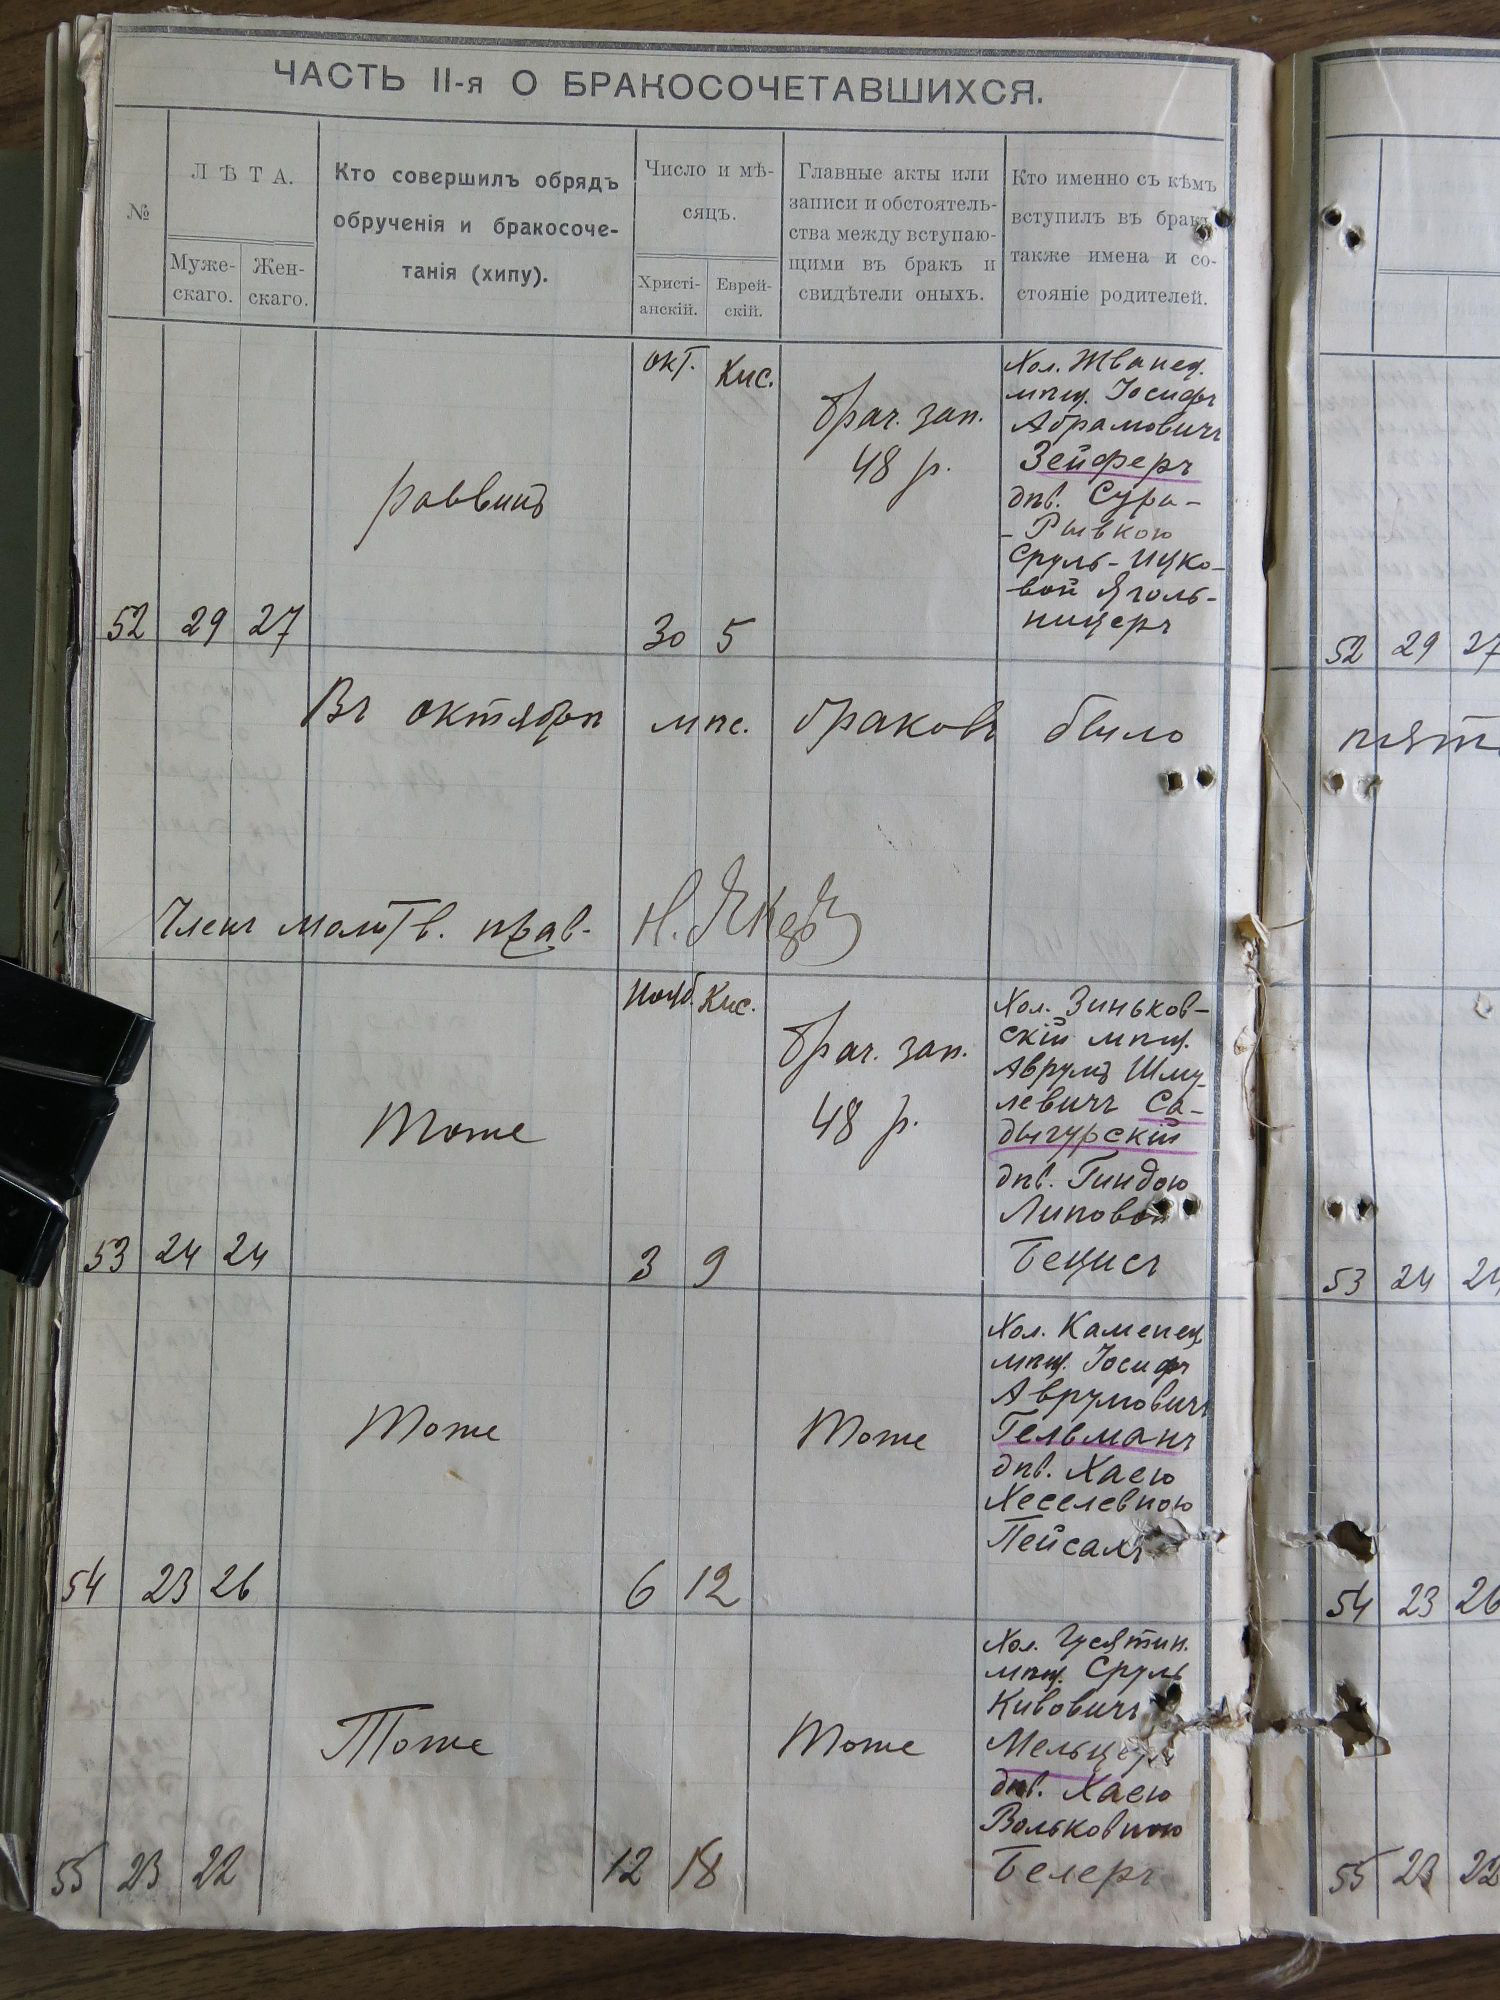 ЧАСТЬ II-я О БРАКОСОЧЕТАВШИХСЯ.
№
ЛѢТА.
Муже-
скаго.
Жен-
скаго.
Кто совершилъ обрядъ
обрученія и бракосоче-
танія (хипу).
Число и мѣ-
сяцъ.
Христі-
анскій.
Еврей-
скій.
Главные акты или
записи и обстоятель-
ства между вступаю-
щими въ бракъ и
свидѣтели оныхъ.
Кто именно съ кѣмъ
вступилъ въ бракъ
также имена и со-
стояніе родителей.
52 29 27
раввинъ
окт.
30
Кис.
5
брач. зап.
48 р.
Хол. Жванец.
мѣщ. Іосифъ
Абрамовичъ
Зейферъ
дѣв. Сура-
-Рывкою
Сруль-Ицко-
вой Яголь-
ницеръ
Въ октябрѣ мѣс. браковъ было
Членъ молитв. прав-
53 24 24
Тоже
нояб.
3
Кис.
9
брач. зап.
48 р.
Хол. Зиньков-
скій мѣщ.
Аврумъ Шму-
левичъ Са-
дыгурскій
дѣв. Гиндою
Липовой
Бецисъ
54 23 26
Тоже
6 12
Тоже
Хол. Каменец.
мѣщ. Іосифъ
Аврумовичъ
Гельманъ
дѣв. Хаею
Хеселевною
Пейсахъ
55 23 22
Тоже
12 18
Тоже
Хол. Гусятин.
мѣщ. Сруль
Кивовичъ
Мельцеръ
дѣв. Хаею
Вольковною
Белеръ
52 29 27
пят
53 24 24
54 23 26
55 23 22